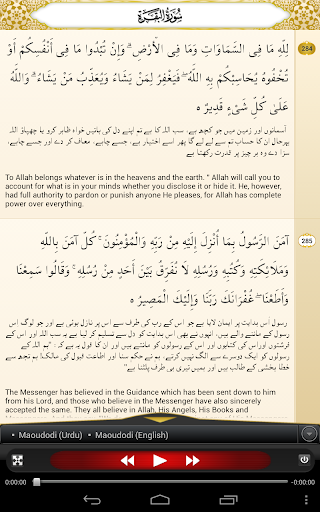 سُورَةُ الْبَقَرَةِ
284
لِلَّهِ مَا فِي السَّمَاوَاتِ وَمَا فِي الْأَرْضِ ۗ وَإِنْ تُبْدُوا مَا فِي أَنْفُسِكُمْ أَوْ
تُخْفُوهُ يُحَاسِبْكُمْ بِهِ اللَّهُ ۖ فَيَغْفِرُ لِمَنْ يَشَاءُ وَيُعَذِّبُ مَنْ يَشَاءُ ۗ وَاللَّهُ
عَلَىٰ كُلِّ شَيْءٍ قَدِيرٌ ه
آسمانوں اور زمین میں جو کچھ ہے، سب اللہ کا ہے تم اپنے دل کی باتیں خواہ ظاہر کرو یا چھپاؤ اللہ
بہرحال ان کا حساب تم سے لے لے گا پھر اسے اختیار ہے، جسے چاہے، معاف کر دے اور جسے چاہے،
سزا دے وہ ہر چیز پر قدرت رکھتا ہے
To Allah belongs whatever is in the heavens and the earth. " Allah will call you to
account for what is in your minds whether you disclose it or hide it. He, however,
had full authority to pardon or punish anyone He pleases, for Allah has complete
power over everything.
285
آمَنَ الرَّسُولُ بِمَا أُنْزِلَ إِلَيْهِ مِنْ رَبِّهِ وَالْمُؤْمِنُونَ ۚ كُلٌّ آمَنَ بِاللَّهِ
وَمَلَائِكَتِهِ وَكُتُبِهِ وَرُسُلِهِ لَا نُفَرِّقُ بَيْنَ أَحَدٍ مِنْ رُسُلِهِ ۚ وَقَالُوا سَمِعْنَا
وَأَطَعْنَا ۖ غُفْرَانَكَ رَبَّنَا وَإِلَيْكَ الْمَصِيرُ ه
رسول اُس ہدایت پر ایمان لایا ہے جو اس کے رب کی طرف سے اس پر نازل ہوئی ہے اور جو لوگ اس
رسول کے ماننے والے ہیں، انہوں نے بھی اس ہدایت کو دل سے تسلیم کر لیا ہے یہ سب اللہ اور اس کے
فرشتوں اوراس کی کتابوں اور اس کے رسولوں کو مانتے ہیں اور ان کا قول یہ ہے کہ، "ہم اللہ کے
رسولوں کو ایک دوسرے سے الگ نہیں کرتے، ہم نے حکم سنا اور اطاعت قبول کی مالک! ہم تجھ سے
خطا بخشی کے طالب ہیں اور ہمیں تیری ہی طرف پلٹنا ہے
The Messenger has believed in the Guidance which has been sent down to him
from his Lord, and those who believe in the Messenger have also sincerely
accepted the same. They all believe in Allah, His Angels, His Books and
• Maoudodi (Urdu) • Maoudodi (English)
0:00:00 -0:00:00